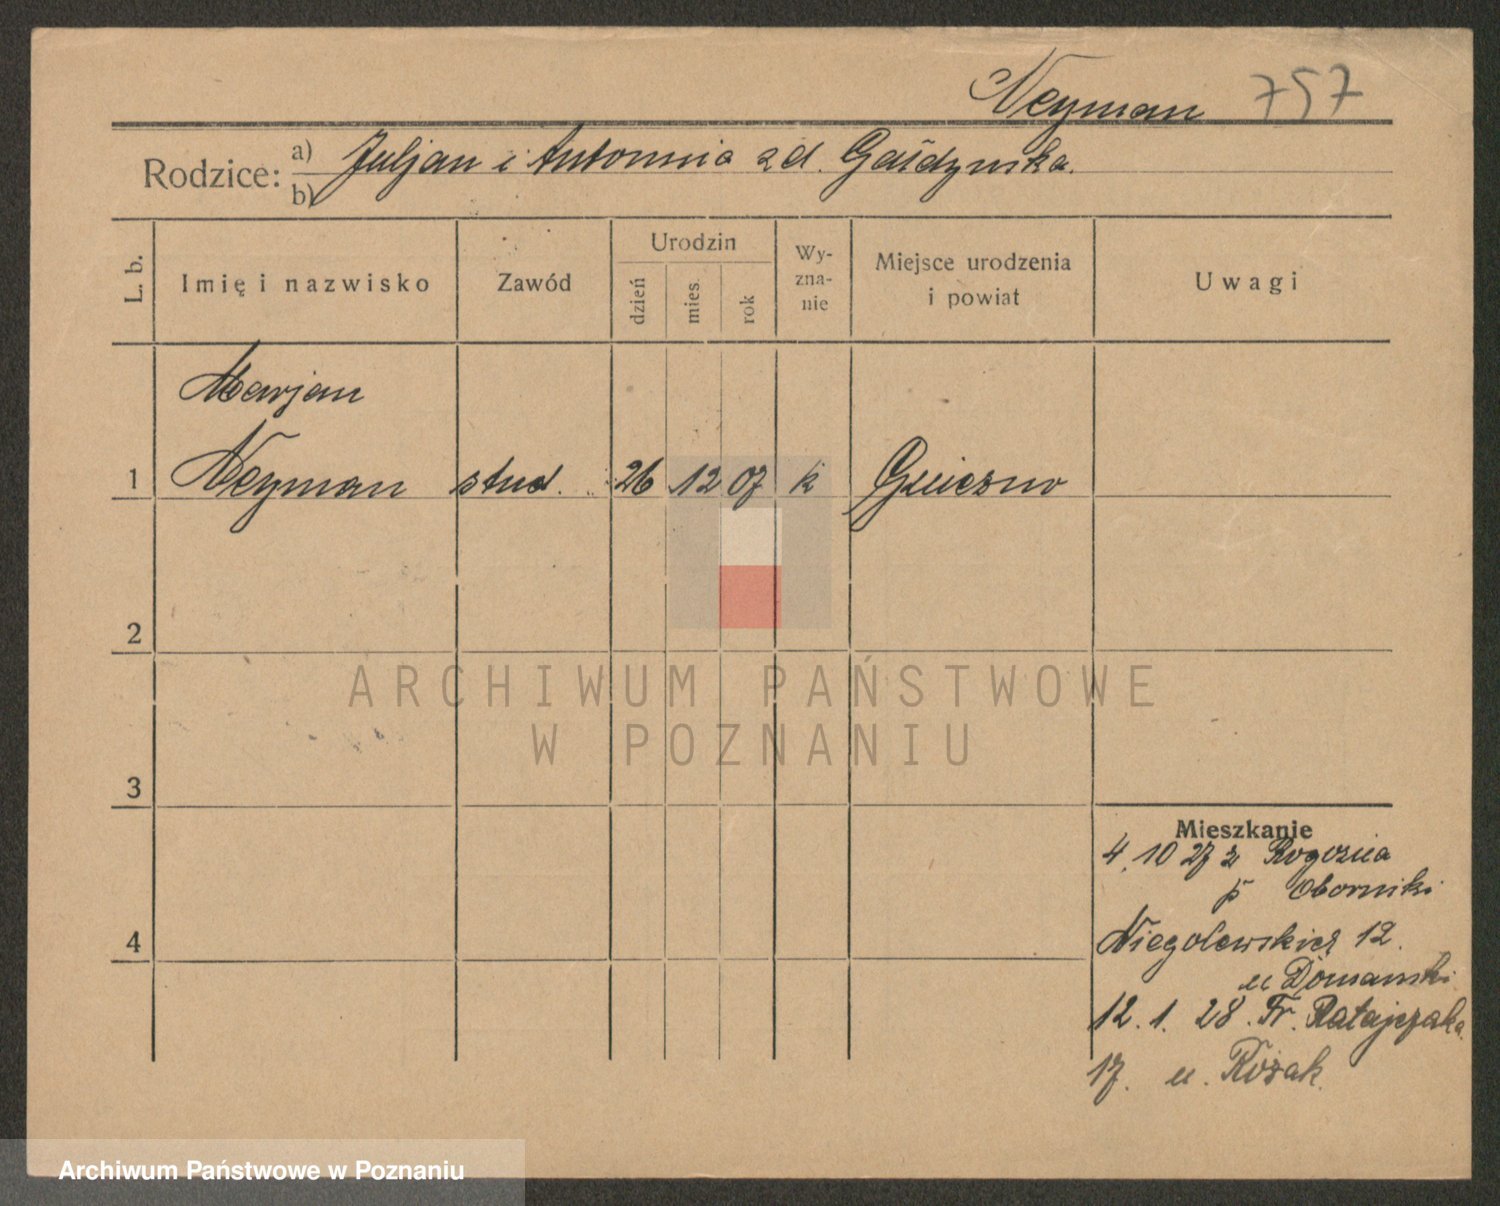 Neyman 757
Rodzice: a) Juljan i Antonnia zd.
b)
L. b.
Imię i nazwisko
Zawód
Urodzin
dzień
mies.
rok
Wy-
zna-
nie
Miejsce urodzenia
i powiat
Uwagi
Marjan
1 Neyman stud. 26 12 07 k Gniezno
2
ARCHIWUM PAŃSTWOWE
W POZNANIU
3
Mieszkanie
4.10 27 z Rogoźna
p Oborniki
4
Niegolewskich 12.
u Domanski
12.1.28. Fr. Ratajczaka
17. u. Kozak.
Archiwum Państwowe w Poznaniu